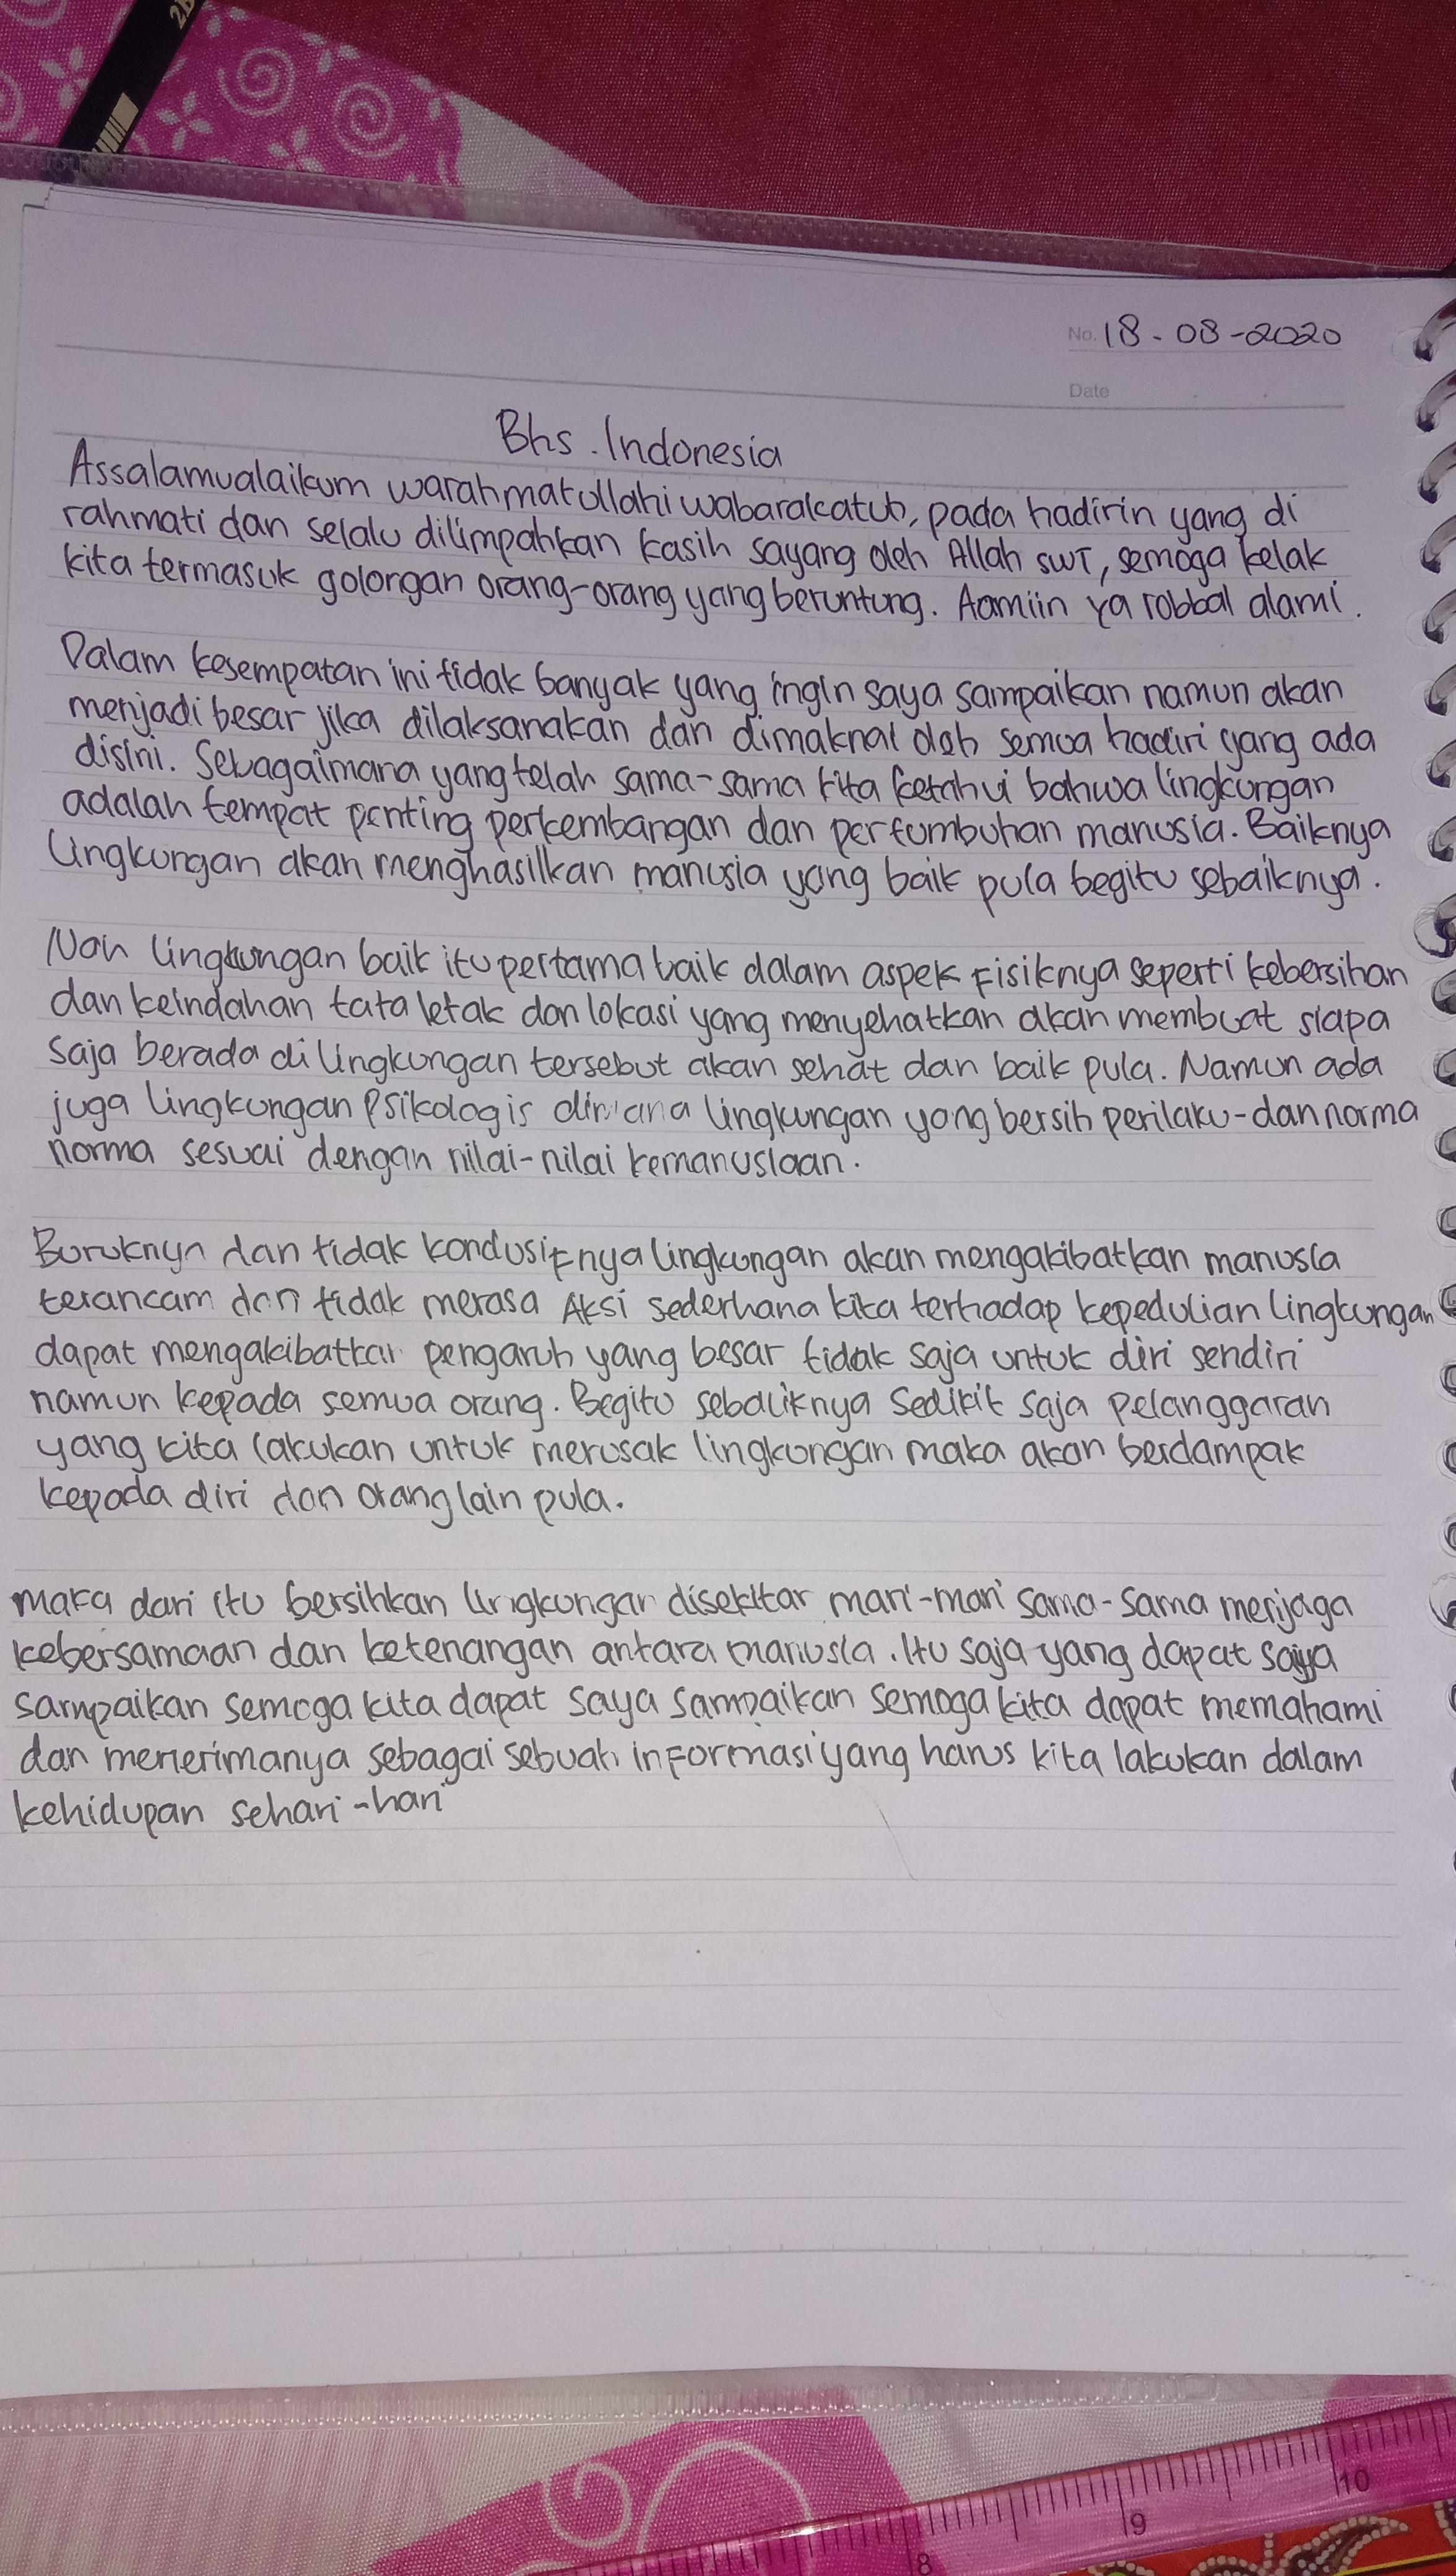 2B
No. 18-08-2020
Date
Bhs. Indonesia
Assalamualaikum warahmatullahi wabarakatuh, pada hadirin yang di
rahmati dan selalu dilimpahkan kasih sayang oleh Allah SWT, semoga kelak
kita termasuk golongan orang-orang yang beruntung. Aamiin ya robbal alami.
Dalam kesempatan ini tidak banyak yang ingin saya sampaikan namun akan
menjadi besar jika dilaksanakan dan dimaknai oleh semua hadiri yang ada
disini. Sebagaimana yang telah sama-sama kita ketahui bahwa lingkungan
adalah tempat penting perkembangan dan pertumbuhan manusia. Baiknya
lingkungan akan menghasilkan manusia yang baik pula begitu sebaiknya.
Nah lingkungan baik itu pertama baik dalam aspek fisiknya seperti kebersihan
dan keindahan tata letak dan lokasi yang menyehatkan akan membuat siapa
saja berada di lingkungan tersebut akan sehat dan baik pula. Namun ada
juga lingkungan psikologis dimana lingkungan yang bersih perilaku-dan norma
norma sesuai dengan nilai-nilai kemanusiaan.
Buruknya dan tidak kondusifnya lingkungan akan mengakibatkan manusia
terancam dan tidak merasa Aksi sederhana kita terhadap kepedulian lingkungan
dapat mengakibatkan pengaruh yang besar tidak saja untuk diri sendiri
namun kepada semua orang. Begitu sebaliknya sedikit saja pelanggaran
yang kita lakukan untuk merusak lingkungan maka akan berdampak
kepada diri dan orang lain pula.
maka dari itu bersihkan lingkungan disekitar mari-mari sama-sama menjaga
kebersamaan dan ketenangan antara manusia. Itu saja yang dapat saya
sampaikan semoga kita dapat saya sampaikan semoga kita dapat memahami
dan menerimanya sebagai sebuah informasi yang harus kita lakukan dalam
kehidupan sehari-hari
8 9 10